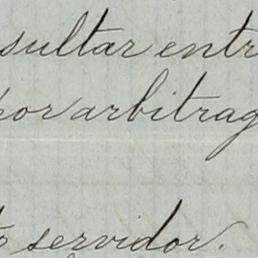 sultar entr
por arbitrag
servidor.